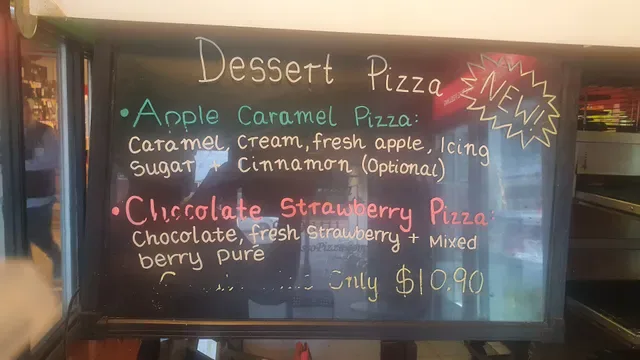 Dessert Pizza
NEW!
• Apple Caramel Pizza:
Caramel, cream, fresh apple, Icing
Sugar + Cinnamon (Optional)
• Chocolate Strawberry Pizza:
Chocolate, fresh strawberry + Mixed
berry puré
Only $10.90